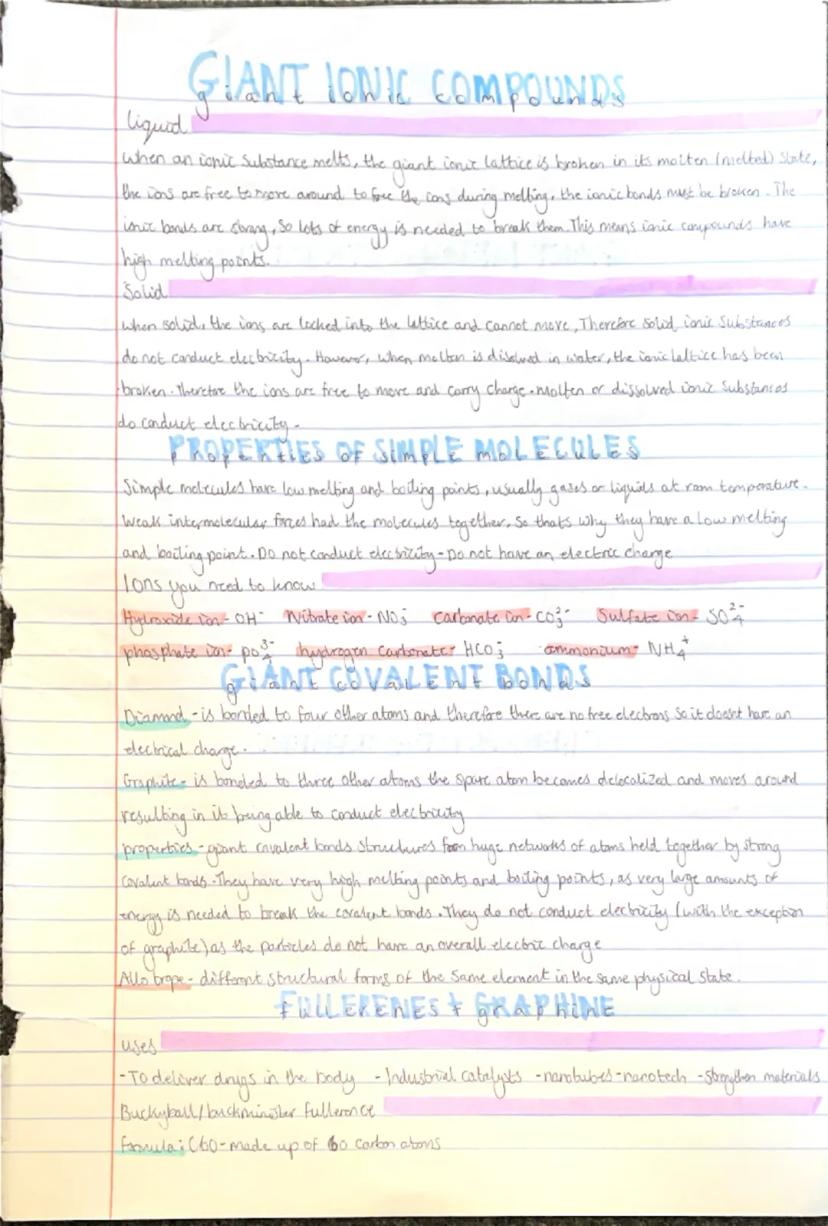 GIANT IONIC COMPOUNDS
giant ionic compounds
Liquid
When an ionic substance melts, the giant ionic lattice is broken in its molten (melted) state,
the ions are free to move around to free the ions during melting, the ionic bonds must be broken. The
ionic bonds are strong, so lots of energy is needed to break them. This means ionic compounds have
high melting points.
Solid
When solid, the ions are locked into the lattice and cannot move, Therefore solid ionic substances
do not conduct electricity. However, when molten is disolved in water, the ionic lattice has been
broken. Therefore the ions are free to move and carry charge. Molten or dissolved ionic substances
do conduct electricity.
PROPERTIES OF SIMPLE MOLECULES
Simple molecules have low melting and boiling points, usually gases or liquids at room temperature.
Weak intermolecular forces had the molecules together, So thats why they have a low melting
and boiling point. Do not conduct electricity - Do not have an electric charge
Ions you need to know
Hydroxide ion - OH⁻ Nitrate ion - NO₃⁻ carbonate ion - CO₃²⁻ Sulfate ion - SO₄²⁻
phosphate ion - PO₄³⁻ hydrogen carbonate - HCO₃⁻ ammonium - NH₄⁺
GIANT COVALENT BONDS
giant covalent bonds
Diamond - is bonded to four other atoms and therefore there are no free electrons so it doesnt have an
electrical charge.
Graphite - is bonded to three other atoms the spare atom becomes delocalized and moves around
resulting in it being able to conduct electricity
properties - giant covalent bonds structures from huge networks of atoms held together by strong
covalent bonds. They have very high melting points and boiling points, as very large amounts of
energy is needed to break the covalent bonds. They do not conduct electricity (with the exception
of graphite) as the particles do not have an overall electric charge
Allotrope - different structural forms of the same element in the same physical state.
FULLERENES + GRAPHINE
uses
- To deliver drugs in the body - Industrial catalysts - nanotubes - nanotech - strengthen materials
Buckyball/buckminster fullerence
formula: C60 - made up of 60 carbon atoms